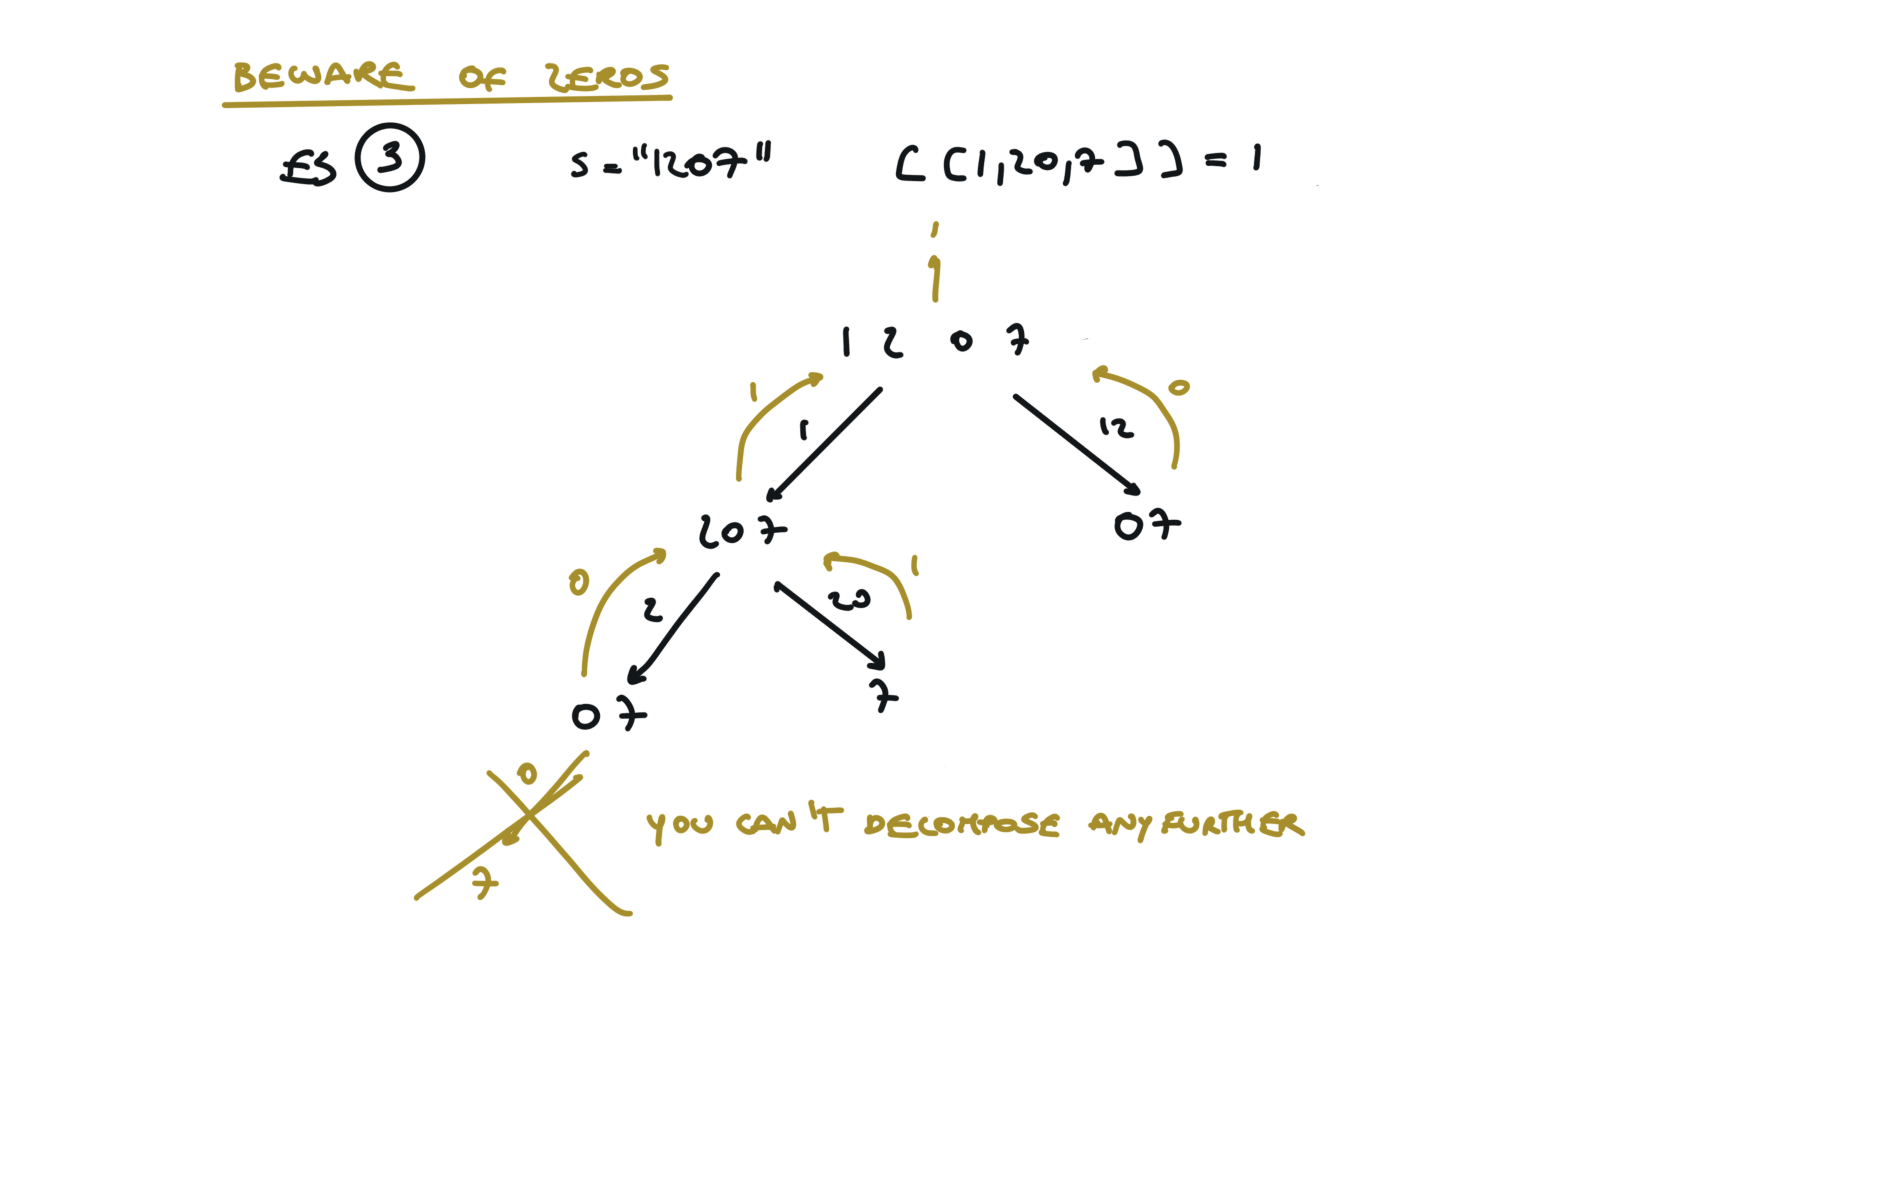 BEWARE OF ZEROS
ES 3 S="1207" [[1,20,7]] = 1
1
1 2 0 7
1 1 12 0
207 07
0 2 20 1
07 7
0
YOU CAN'T DECOMPOSE ANY FURTHER
7